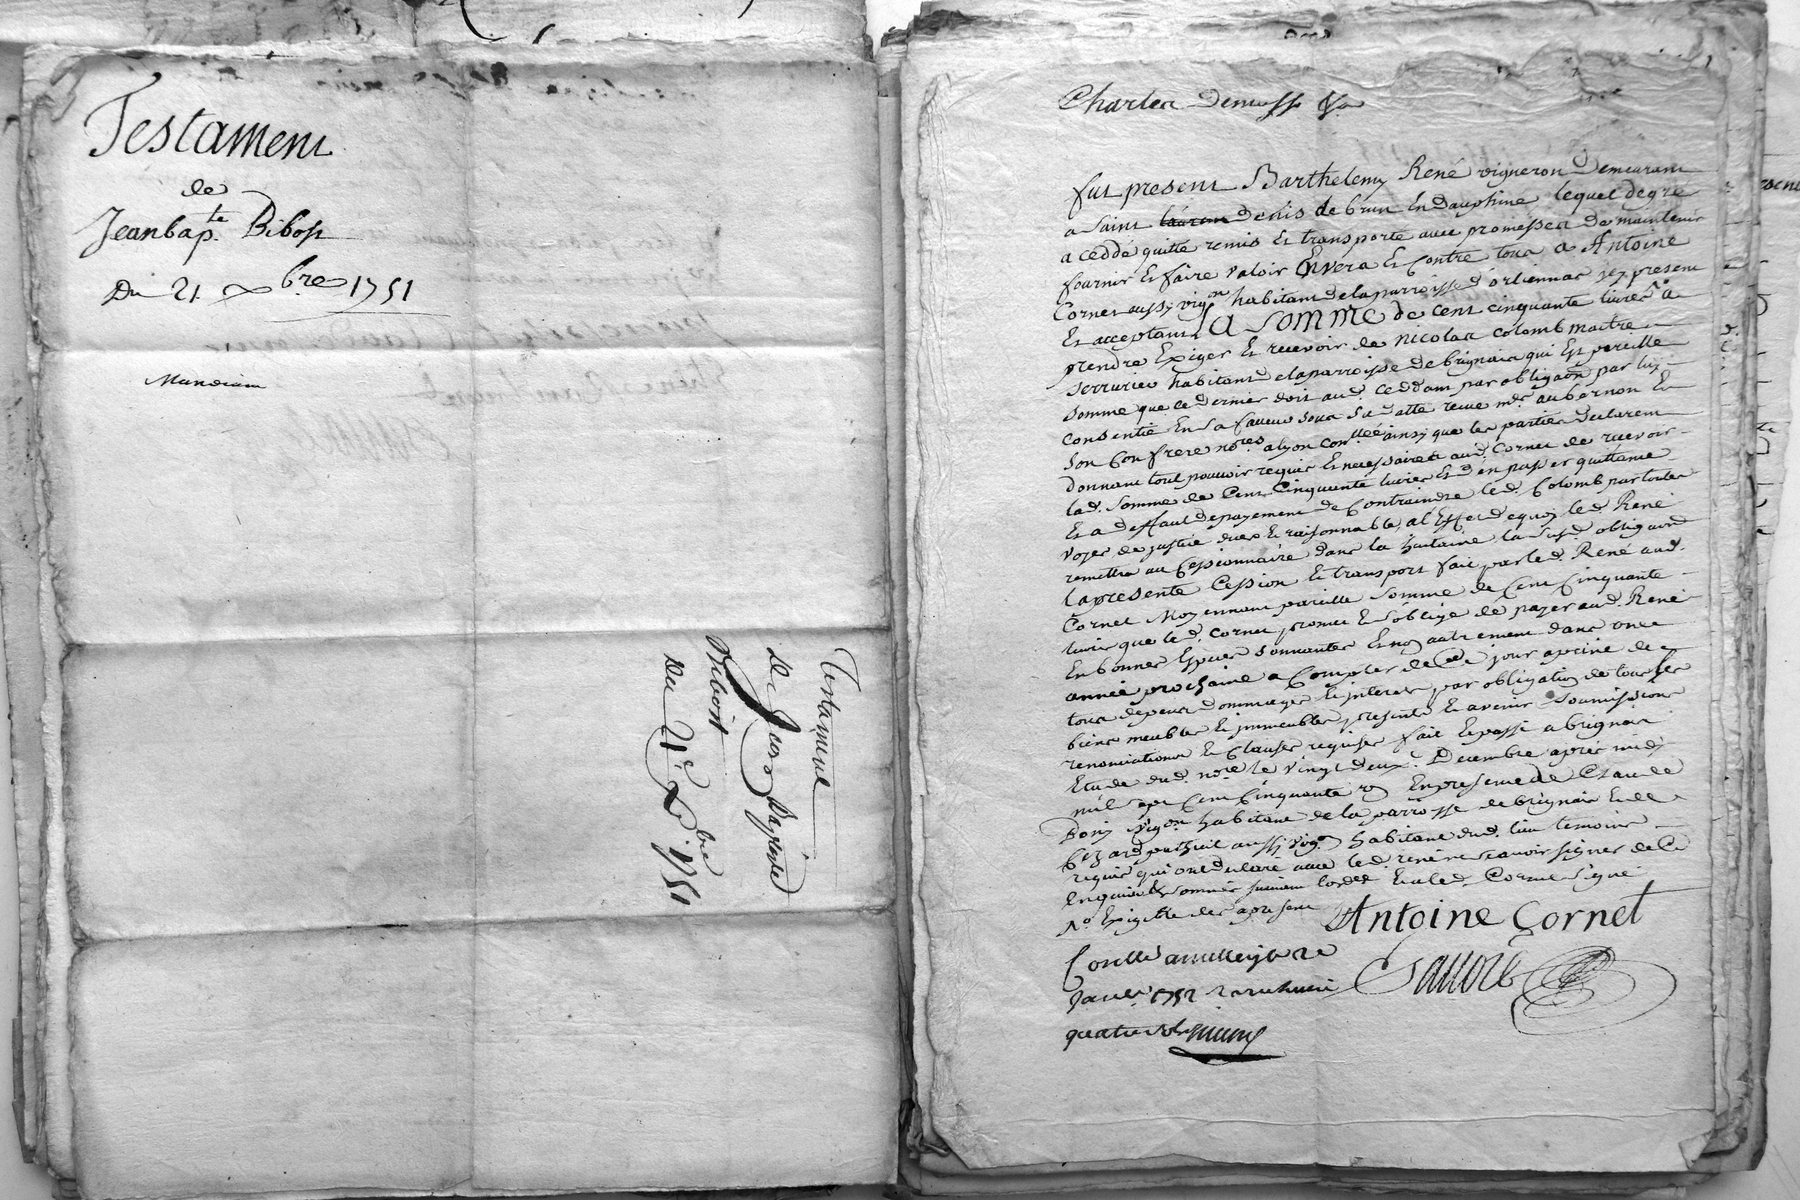 Testament
de
Jeanbap.te Bibost
Du 21. xbre 1751
Mandiant
Testament
de Jean Baptiste
Bibost
du 21e xbre 1751
Charles
fut present Barthelemy René vigneron Demeurant
a Saint denis de brun En dauphiné lequel de gré
a ceddé quitté remis Et transporté avec promesses de maintenir
fournir Et faire valoir Envers Et contre tous a Antoine
Cornet aussy vigon habitant de la parroisse d'orliennas icy present
Et acceptant La Somme de cent cinquante livres a
prendre Exiger Et recevoir de Nicolas Colomb maitre
serrurier habitant de la parroisse de brignais qui Est pareille
somme que ce dernier doit aud. ceddant par obligaon par luy
consentie En sa faveur sous sa datte recue me aubernon Et
son Confrere nores a lyon ainsy que les parties declarent
donnant tout pouvoir requis Et necessaire aud. Cornet de recevoir
lad. Somme de Cent Cinquante livres Et d'en passer quittance
Et a deffaut de payement de Contraindre led. Colomb par toutes
voyes de justice dues Et raisonnables, a l'Effet de quoy led. René
remettra au Cessionnaire dans la huitaine la susd. obligaon
la presente Cession Et transport fait par led. René aud.
Cornet Moyennant pareille somme de Cent Cinquante
livres que led. Cornet promet Et s'oblige de payer aud. René
En bonnes Especes sonnantes Et non autrement dans une
année prochaine a Compter de Ce jour a peine de
tous depens dommages Et interets par obligation de tous ses
biens meubles Et immeubles presents Et avenir soumissions
renonciations Et Clauses requises fait Et passé a brignais
Etude dud. nore le vingt deux Decembre après midy
mil sept Cent Cinquante En presence de Claude
vigon habitant de la parroisse de brignais Et de
aussy vigon habitant dud. lieu temoins
requis qui ont declaré avec led. rené ne scavoir signer de Ce
Enquis Et sommés suivant l'ordce Et a led. Cornet signé
Antoine Cornet
Conllé a
Janer 1752
quatre